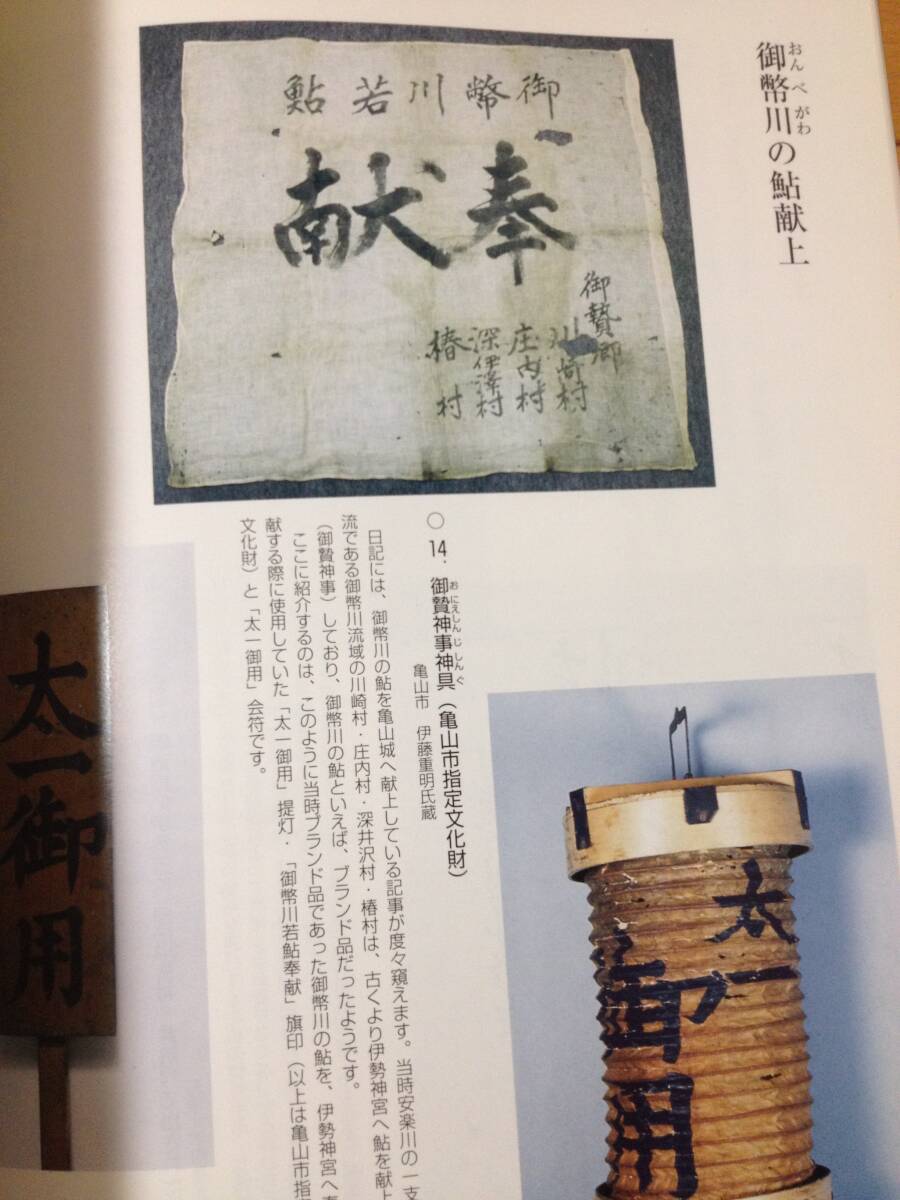 御幣川の鮎献上
おんべがわ
御幣川若鮎
奉献
御贄郷
川崎村
庄内村
深伊澤村
椿村
○14. 御贄神事神具（亀山市指定文化財）
おにえしんじしんぐ
亀山市 伊藤重明氏蔵
日記には、御幣川の鮎を亀山城へ献上している記事が度々窺えます。当時安楽川の一支
流である御幣川流域の川崎村・庄内村・深井沢村・椿村は、古くより伊勢神宮へ鮎を献上
（御贄神事）しており、御幣川の鮎といえば、ブランド品だったようです。
ここに紹介するのは、このように当時ブランド品であった御幣川の鮎を、伊勢神宮へ奉
献する際に使用していた「太一御用」提灯・「御幣川若鮎奉献」旗印（以上は亀山市指定
文化財）と「太一御用」会符です。
太一御用
太一御用